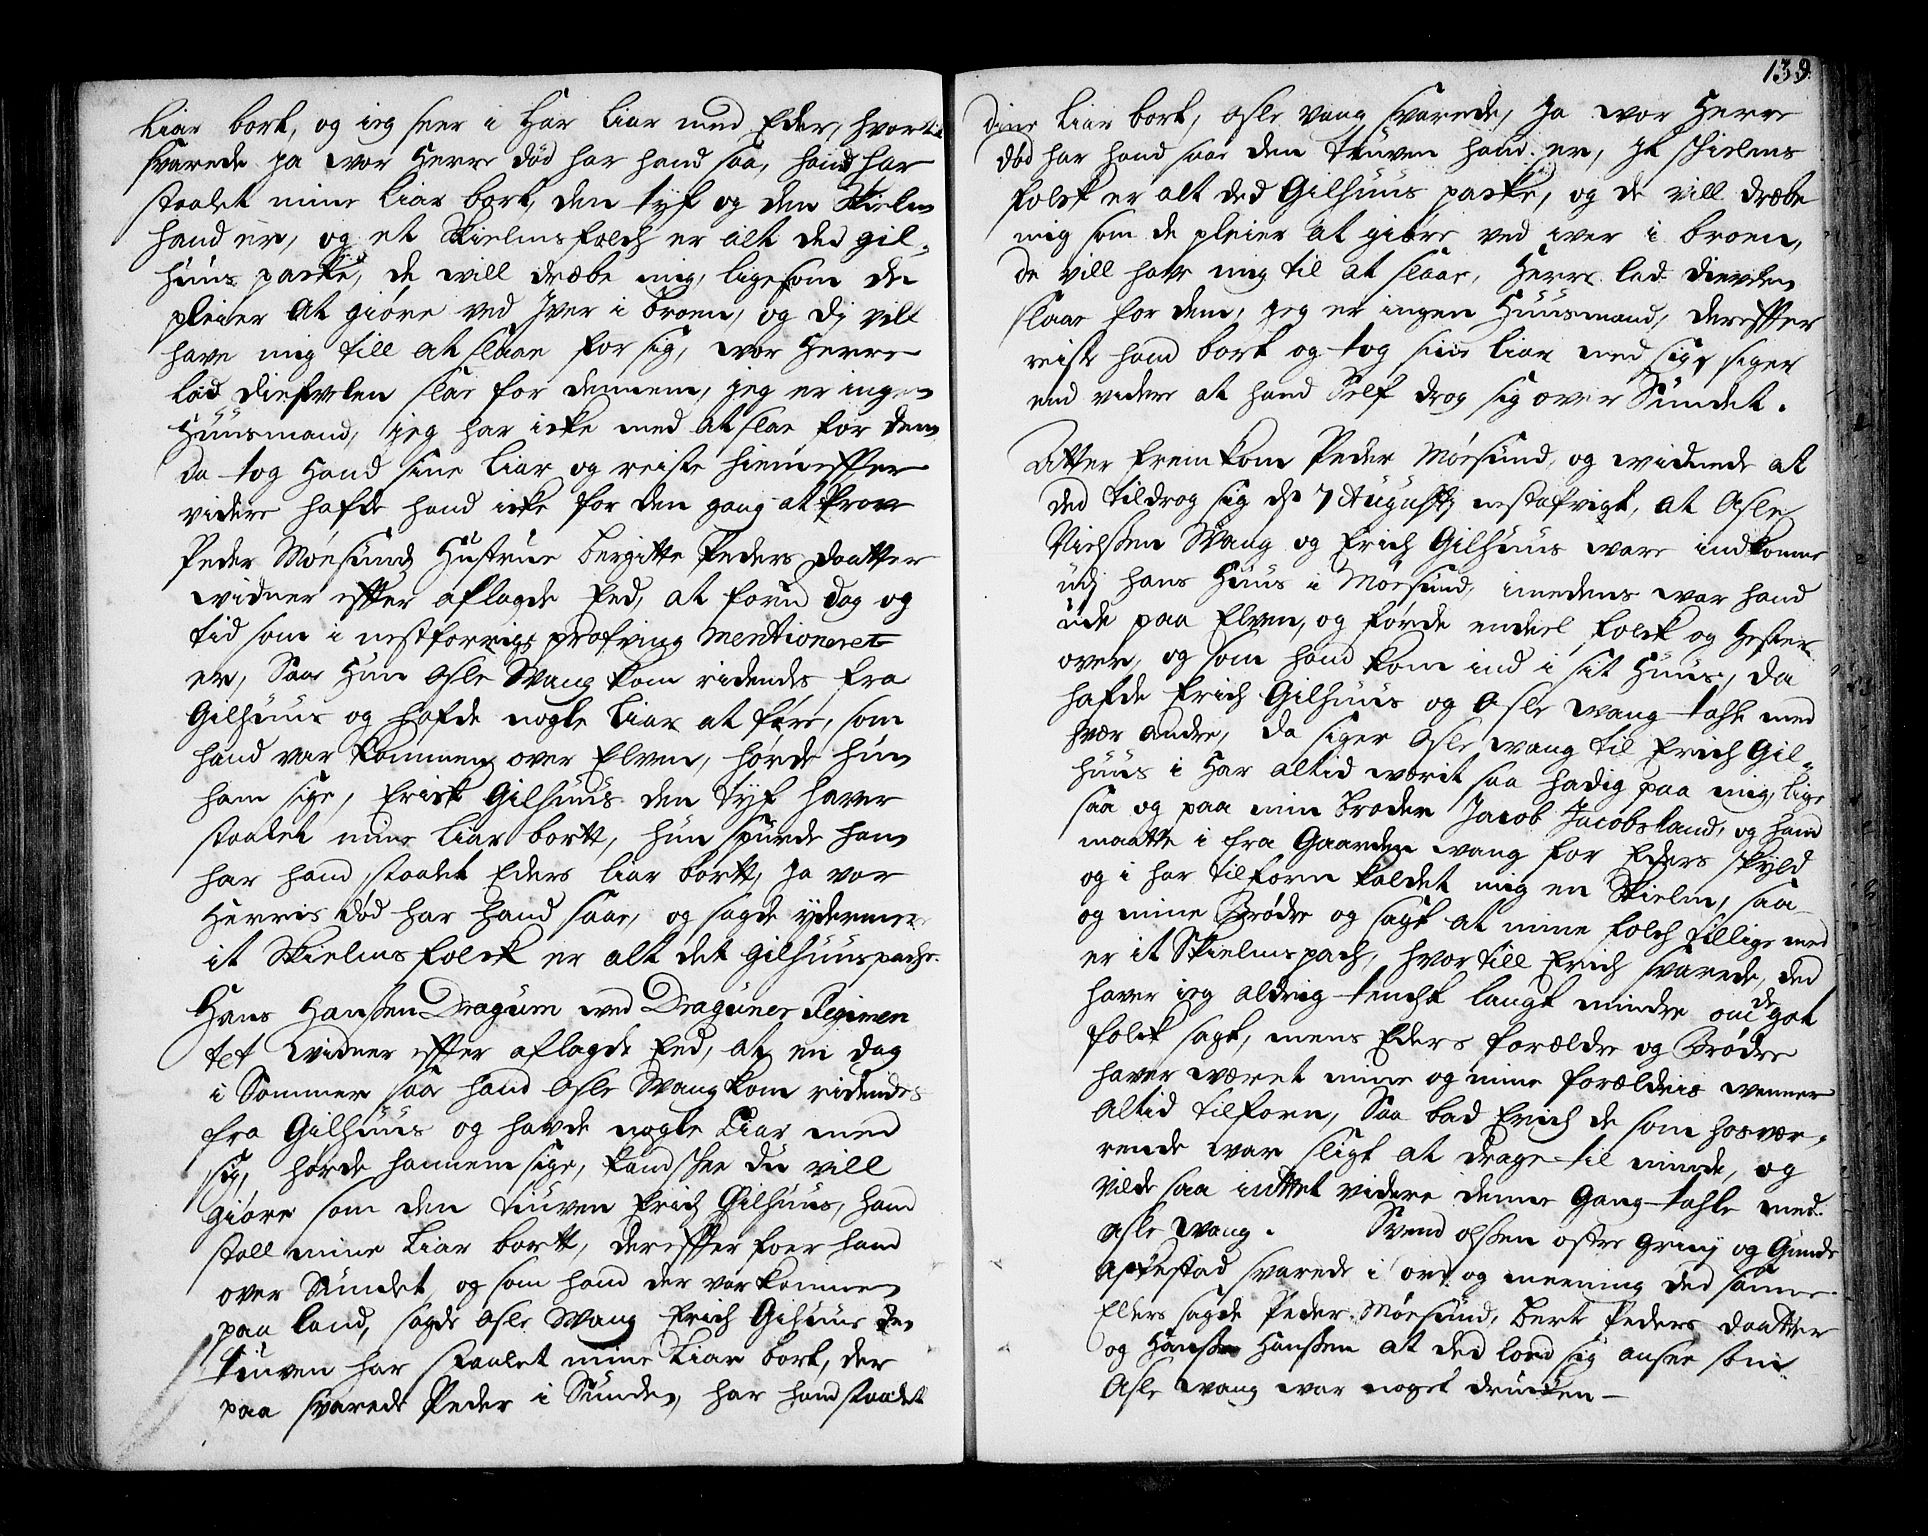 Liar bort, og ieg seer i Har Liar med Eder, hvort
svarede Ja wor Herre død har hand saa, hand har
staalet mine Liar bort, den tyf og den Skielm
hand er, og et Skielmsfolch er alt ded gil-
huus packe, de will dræbe mig, ligesom de
pleier at giøre ved Iver i broen, og dj vill
have mig till at slaae for sig, wor Herre
lad diefvelen slaae for dennem, jeg er ingen
Huusmand, jeg har icke med at slae for dem
da tog Hand sine Liar og reiste hiem effter
videre hafde hand icke for den gang at prove
Peder Moesund Hustrue Bergitte Peders daatter
widner effter aflagde Eed, at forn dag og
tid som i nestforrige prøfving Mentioneret
er, Saae Hun Asle Wang kom ridendes fra
Gilhuus og hafde nogle Liar at føre, som
hand var kommen over Elven, hørde hun
ham sige, Erick Gilhuus den tyf haver
staalet mine Liar bortt, hun spurde ham
har hand staalet Eders Liar bortt, Ja vor
Herris død har hand saae, og sagde ydermere
it Skielms folck er alt det Gilhuuspache
Hans Hanssen Dragum wed Draguner Regimen
tet widner effter aflagde Eed, at en dag
i Sommer saa hand Asle Wang kom ridendes
fra Gilhuus og havde nogle Liar med
sig, hørde hannem sige, kand skee du vill
giøre som den tiuven Erich Gilhuus, hand
stall mine Liar bortt, dereffter foer hand
over Sundet, og som hand der var kommen
paa land, sagde Asle Wang Erich Gihuus den
tiuven har staalet mine Liar bort, der
paa svarede Peder i Sunde, har hand staalet
139
dine Liar bort, Asle vang svarede, Ja wor Herre
død har hand saa den tiuven hand er, It Skielms
folck er alt ded Gilhuus packe, og de vill dræbe
mig som de pleier at giøre ved iver i broen,
de vill have mig til at slaae, Herre lad dievelen
slaae for dem, jeg er ingen Huusmand, dereffter
reiste hand bort og tog sine Liar med sig, siger
end videre at hand Self drog sig over Sundet.
Atter fremkom Peder Moesund, og widnede at
ded tildrog sig dn 7 Augusti nestafvigt, at Asle
Nielssen Wang og Erich Gilhuus ware indkomne
udj hans Huus i Moesund, imedens war hand
ude paa Elven, og førde endeel folck og Hester
over, og som hand kom ind i sit Huus, da
hafde Erich Gilhuus og Asle wang tahlt med
hver andre, da siger Asle wang til Erich Gil-
huus i Har altid wærit saa hadig paa mig, lige
saa og paa min broder Jacob Jacobsland, og hand
maatte i fra Gaarden wang for Eders skyld
og i har tilforn kaldet mig en Skielm, saa
og mine Brødre og sagt at mine folch tillige med
er it Skielms pach, hvortill Erich svarede, ded
haver ieg aldrig tencht langt mindre ond de got
folck sagt, mens Eders forældre og Brødre
haver wæret mine og mine forældris wenner
Altid tilforn, Saa bad Erich de som hosvæ-
rende war sligt at drage til minde, og
vilde saa inttet videre denne Gang tahle med
Asle wang. Svend olssen østre Grinj og Gunde
Apestad svarede i ord og meening ded samme
Ellers sagde Peder Moesund, Berte Peders daatter
og Hanss Hanssen at ded loed sig ansee som
Asle wang war noget drucken